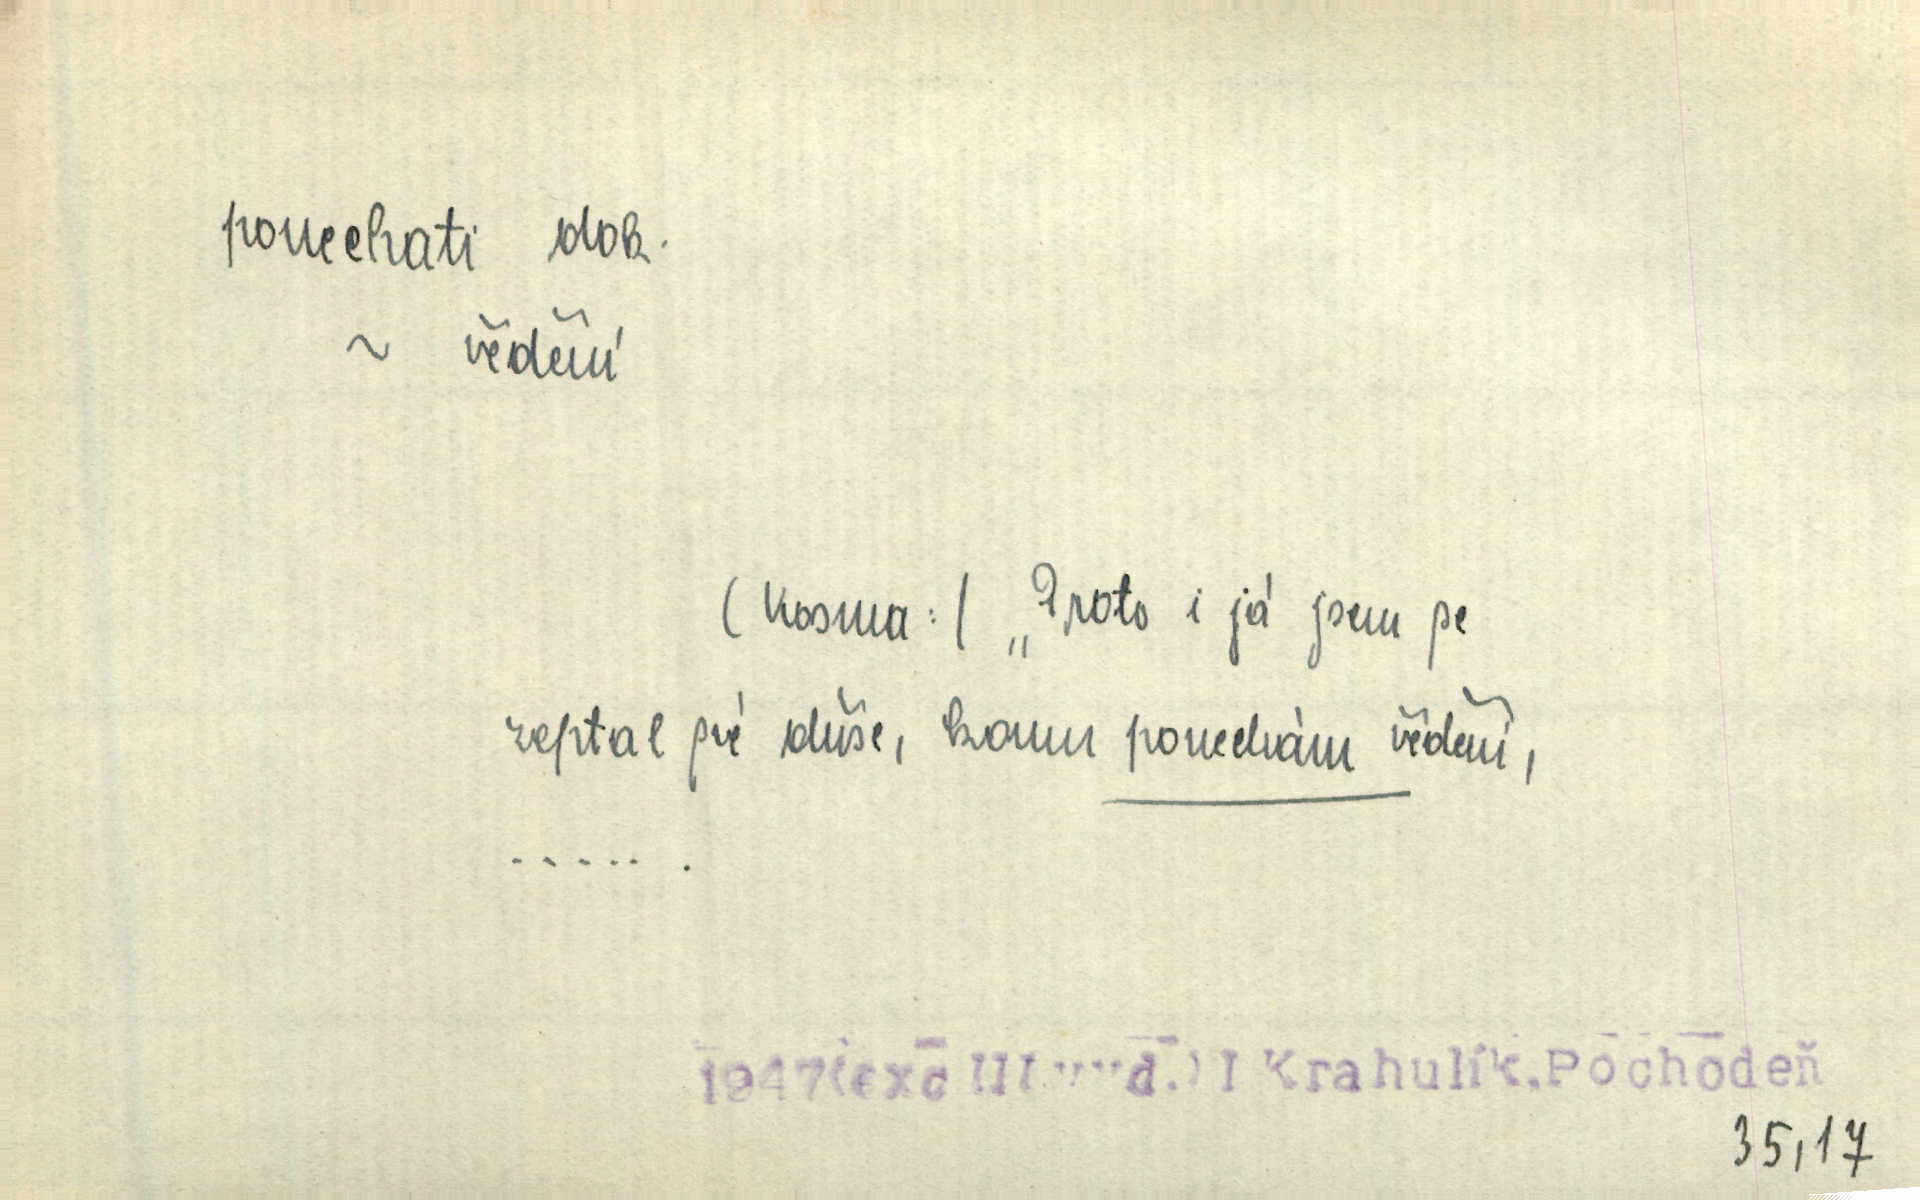 ponechati dok.
~ vědění
(Kosma:/ „Proto i já jsem se
zeptal své duše, komu ponechám vědění,
..... .
1947(exc III. vyd.) I Krahulík,Pochodeň
35,17